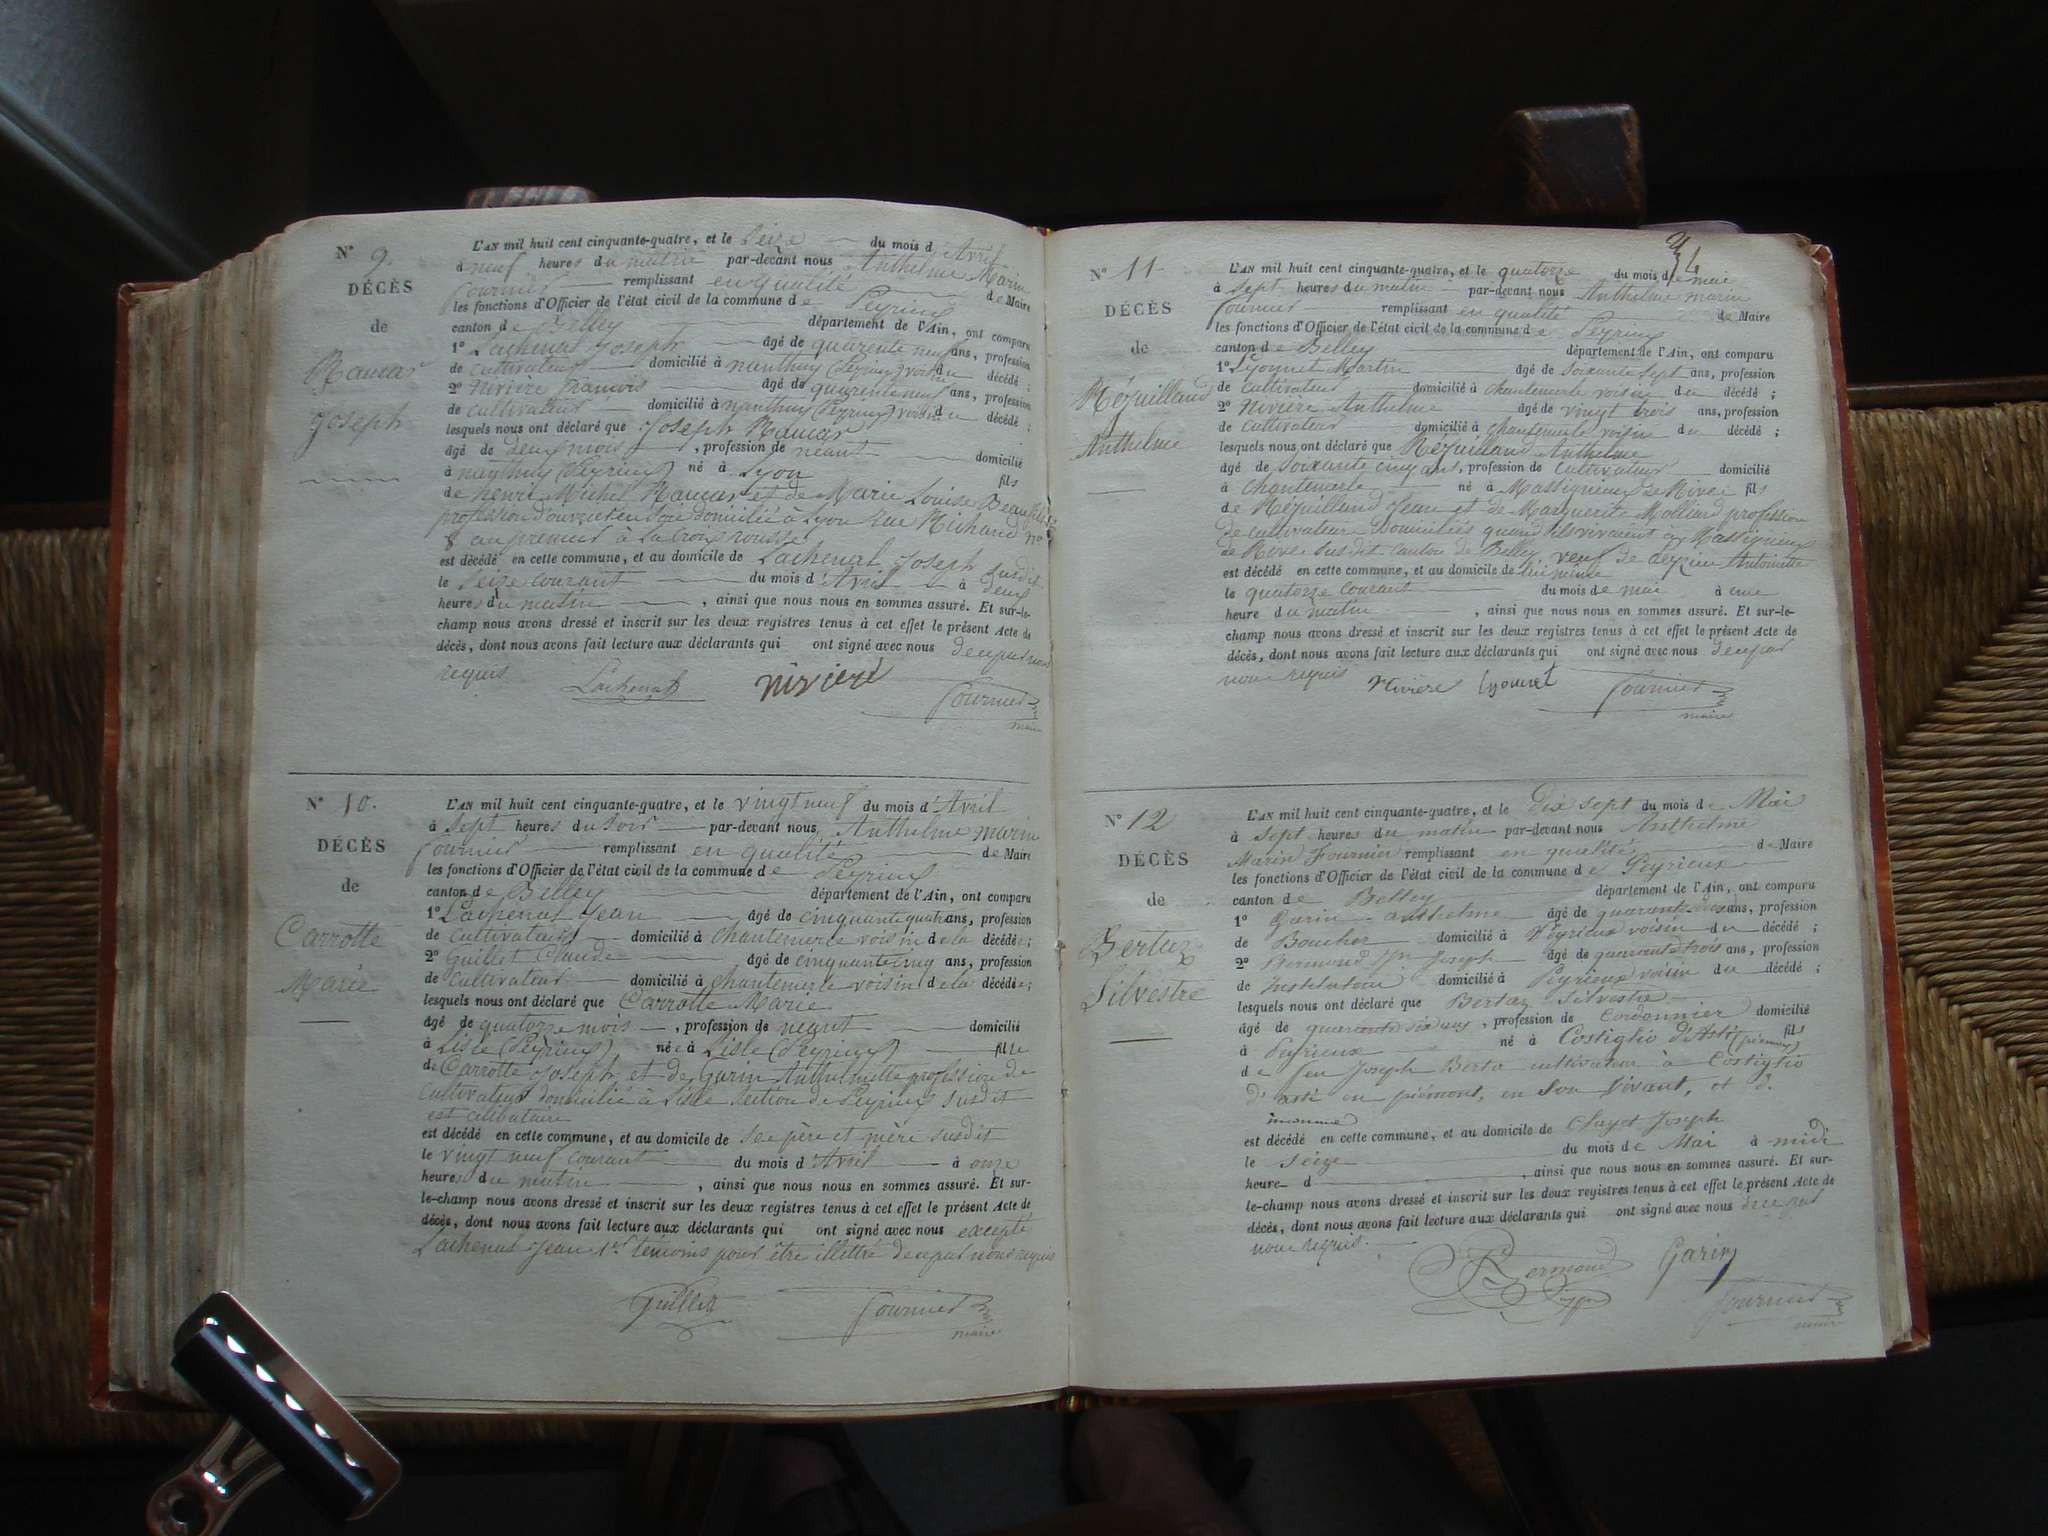 N° 9.
DÉCÈS
de
Ramas
Joseph
L'AN mil huit cent cinquante-quatre, et le Seize du mois d'Avril
à neuf heures du matin par-devant nous Anthelme Marin
Fournier remplissant en qualité de Maire
les fonctions d'Officier de l'état civil de la commune de Peyrieux
canton de Belley département de l'Ain, ont comparu
1° Lachenal Joseph âgé de quarente neuf ans, profession
de cultivateur domicilié à nanthuy (Peyrieux) voisin du décédé ;
2° Nivière François âgé de quarente neuf ans, profession
de cultivateur domicilié à nanthuy (Peyrieux) voisin du décédé ;
lesquels nous ont déclaré que Joseph Ramas
âgé de deux mois , profession de néant domicilié
à nanthuy (Peyrieux) né à Lyon fils
de henri Michel Ramas et de Marie Louise Beaufils
profession d'ouvrier en Soie domicilié à Lyon Rue Richand n°
8 au premier à la croix rousse
est décédé en cette commune, et au domicile de Lachenal Joseph susdit
le Seize courant du mois d'Avril à deux
heures du matin , ainsi que nous nous en sommes assuré. Et sur-le-
champ nous avons dressé et inscrit sur les deux registres tenus à cet effet le présent Acte de
décès, dont nous avons fait lecture aux déclarants qui ont signé avec nous de ce par nous
requis
Lachenal nivière Fournier
maire
N° 10.
DÉCÈS
de
Carrotte
Marie
L'AN mil huit cent cinquante-quatre, et le vingt neuf du mois d'Avril
à Sept heures du Soir par-devant nous Anthelme Marin
Fournier remplissant en qualité de Maire
les fonctions d'Officier de l'état civil de la commune de Peyrieux
canton de Belley département de l'Ain, ont comparu
1° Lachenal Jean âgé de cinquante quatre ans, profession
de cultivateur domicilié à chantemerle voisin de la décédée ;
2° Guillet Claude âgé de cinquante cinq ans, profession
de cultivateur domicilié à chantemerle voisin de la décédée ;
lesquels nous ont déclaré que Carrotte Marie
âgé de quatorze mois , profession de neant domicilié
à Lisle (Peyrieux) née à Lisle (Peyrieux) fille
de Carrotte Joseph et de Garin Anthelmette profession de
cultivateur domicilié à Lisle Section de Peyrieux susdit
est célibataire
est décédé en cette commune, et au domicile de See père et mère susdit
le vingt neuf courant du mois d'Avril à onze
heures du matin , ainsi que nous nous en sommes assuré. Et sur-
le-champ nous avons dressé et inscrit sur les deux registres tenus à cet effet le présent Acte de
décès, dont nous avons fait lecture aux déclarants qui ont signé avec nous excepté
Lachenal Jean 1er temoins pour être illettré de ce par nous requis
Guillet Fournier
maire
34
N° 11
DÉCÈS
de
Réguilland
Anthelme
L'AN mil huit cent cinquante-quatre, et le quatorze du mois de mai
à Sept heures du matin par-devant nous Anthelme marin
Fournier remplissant en qualité de Maire
les fonctions d'Officier de l'état civil de la commune de Peyrieux
canton de Belley département de l'Ain, ont comparu
1° Lyonnet Martin âgé de Soixante Sept ans, profession
de cultivateur domicilié à chantemerle voisin du décédé ;
2° Nivière Anthelme âgé de vingt trois ans, profession
de cultivateur domicilié à chantemerle voisin du décédé ;
lesquels nous ont déclaré que Réguilland Anthelme
âgé de Soixante cinq ans, profession de Cultivateur domicilié
à Chantemerle né à Massignieu de Rive fils
de Réguilland Jean et de Marguerite Molliard profession
de cultivateur Domiciliés quand ils vivaient à Massignieu
de Rive susdit canton de Belley, veuf de Antoinette
est décédé en cette commune, et au domicile de lui même
le quatorze courant du mois de mai à une
heure du matin , ainsi que nous nous en sommes assuré. Et sur-le-
champ nous avons dressé et inscrit sur les deux registres tenus à cet effet le présent Acte de
décès, dont nous avons fait lecture aux déclarants qui ont signé avec nous de ce par
nous requis
nivière Lyonnet Fournier
maire
N° 12
DÉCÈS
de
Bertaz
Silvestre
L'AN mil huit cent cinquante-quatre, et le Dix sept du mois de Mai
à sept heures du matin par-devant nous Anthelme
Marin Fournier remplissant en qualité de Maire
les fonctions d'Officier de l'état civil de la commune de Peyrieux
canton de Belley département de l'Ain, ont comparu
1° Garin Anthelme âgé de quarante ans, profession
de Boucher domicilié à Peyrieux voisin du décédé ;
2° Bermond Jn Joseph âgé de quarante trois ans, profession
de Instituteur domicilié à Peyrieux voisin du décédé ;
lesquels nous ont déclaré que Bertaz Silvestre
âgé de quarante six ans , profession de Cordonnier domicilié
à Peyrieux né à Costiglio d'Asti (piémont) fils
de feu Joseph Berta cultivateur à Costiglio
d'asti en piémont, en Son Vivant, et d.
inconnue
est décédé en cette commune, et au domicile de Clayet Joseph
le Seize du mois de Mai à midi
heure d , ainsi que nous nous en sommes assuré. Et sur-
le-champ nous avons dressé et inscrit sur les deux registres tenus à cet effet le présent Acte de
décès, dont nous avons fait lecture aux déclarants qui ont signé avec nous de ce par
nous requis.
Bermond Garin
Fournier
maire